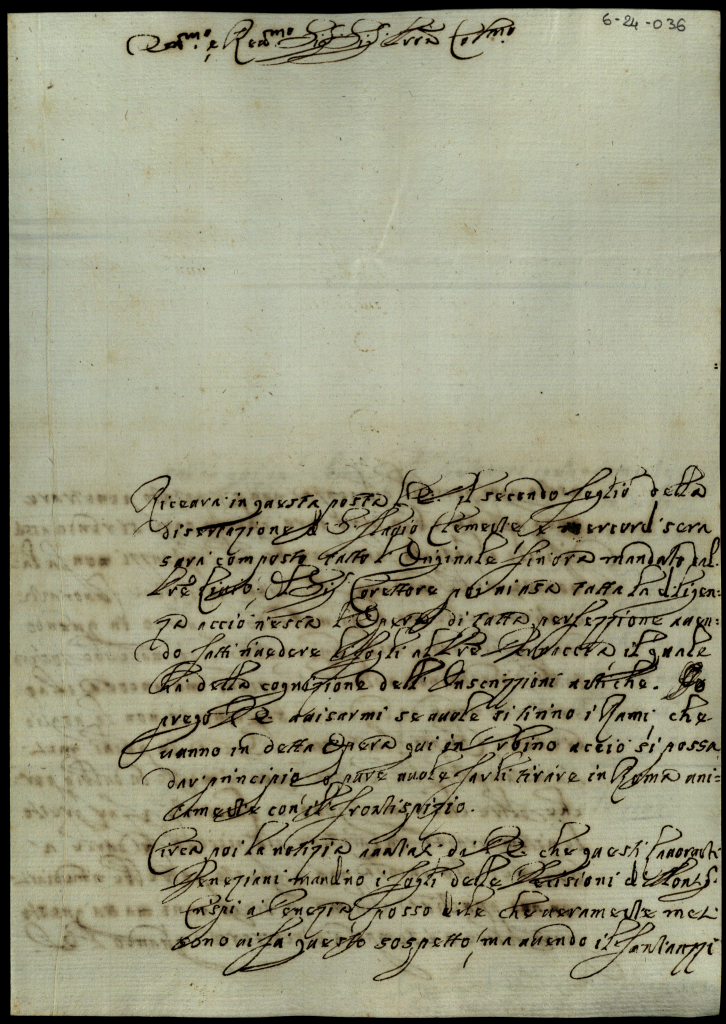 6-24-036
Em.mo e Rev.mo Sig. Sig. P'rōn Col.mo
Riceverà in questa posta V.E. il secondo foglio della
dissertazione di S. Flavio Clemente e mercordì sera
sarà composto tutto l'Originale sin'ora mandato dal
P're Il Sig. Corettore poi vi usa tutta la diligen=
za acciò riesca l'Opera di tutta perfezzione aven=
do fatti rivedere li fogli al P're il quale
ha della cognizione dell'Inscrizzioni antiche. Io
prego V.E. avisarmi se vuole si tirino i Rami, che
vanno in detta Opera qui in Urbino acciò si possa
dar principio, o pure vuole farli tirare in Roma uni=
tamente con il frontispizio.
Circa poi la notizia avuta da V.E. che questi lavoranti
Veneziani mandino i fogli delle Decisioni di Mons.
Crispi a Venezia, posso dirle che veramente
sono vi fà questo sospetto, ma avendo il Fantauzzi